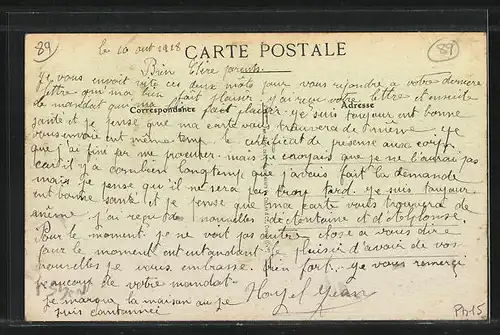 89
le 10 out 1918 CARTE POSTALE 89
Bien Chère parents
je vous envoit vite ces deux mots pour vous réjondre a votre derniere
lettre qui m'a bien fait plaisir. j'ai reçu votre lettre et ensuite
Correspondance Adresse
de mandat qui ma fort fait plaisir. je suis toujour ent bonne
santé et je pense que ma carte vous trouvera de mème. je
vous envoie ent mème temp le certificat de presense aux corp
que j'ai fini par me procurer. mais je croyais que je ne l'aurai pas
car il y a combien longtemp que j'avais fait la demande
mais je pense qui il ne sera pas trop tard. je suis toujour
ent bonne santé et je pense que ma carte vous trouvera de
mème. j'ai reçu des nouvelles de Antoine et d'Alphonse.
Pour le moment je ne voit pas autre chose a vous dire
pour le moment ent entendant le plaisir d'avoir de vos
nouvelles je vous embrasse bien fort. je vous remerci
beaucoup de votre mandat.
je marque la maison au je
suis cantonnei Jean
Ph 15